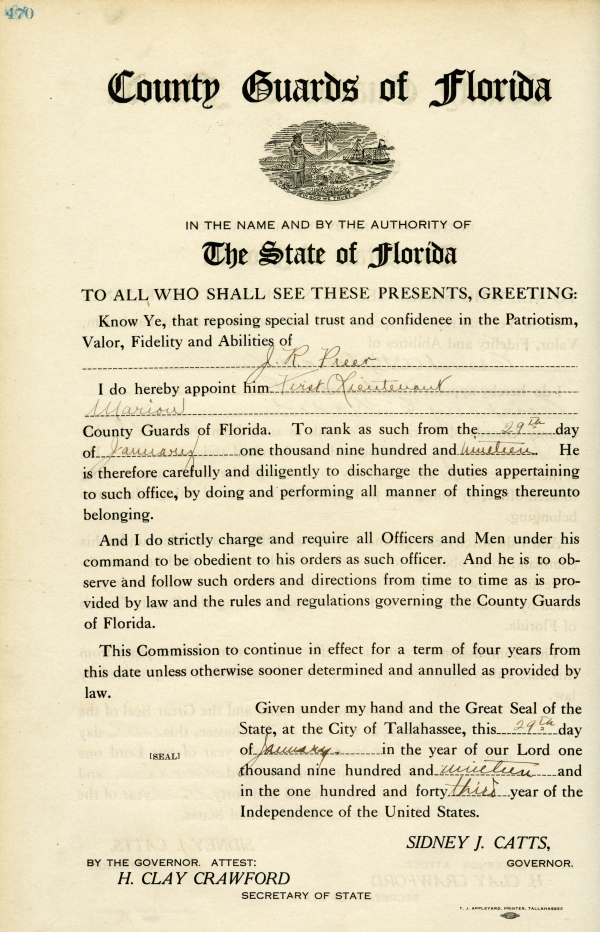 470
County Guards of Florida
IN THE NAME AND BY THE AUTHORITY OF
The State of Florida
TO ALL WHO SHALL SEE THESE PRESENTS, GREETING:
Know Ye, that reposing special trust and confidence in the Patriotism,
Valor, Fidelity and Abilities of
J. R. Preer
I do hereby appoint him First Lieutenant
Marion
County Guards of Florida. To rank as such from the 29th day
of January one thousand nine hundred and nineteen. He
is therefore carefully and diligently to discharge the duties appertaining
to such office, by doing and performing all manner of things thereunto
belonging.
And I do strictly charge and require all Officers and Men under his
command to be obedient to his orders as such officer. And he is to ob-
serve and follow such orders and directions from time to time as is pro-
vided by law and the rules and regulations governing the County Guards
of Florida.
This Commission to continue in effect for a term of four years from
this date unless otherwise sooner determined and annulled as provided by
law.
Given under my hand and the Great Seal of the
State, at the City of Tallahassee, this 29th day
of January. in the year of our Lord one
[SEAL]
thousand nine hundred and nineteen and
in the one hundred and forty third year of the
Independence of the United States.
SIDNEY J. CATTS,
GOVERNOR.
BY THE GOVERNOR. ATTEST:
H. CLAY CRAWFORD
SECRETARY OF STATE
T. J. APPLEYARD, PRINTER, TALLAHASSEE